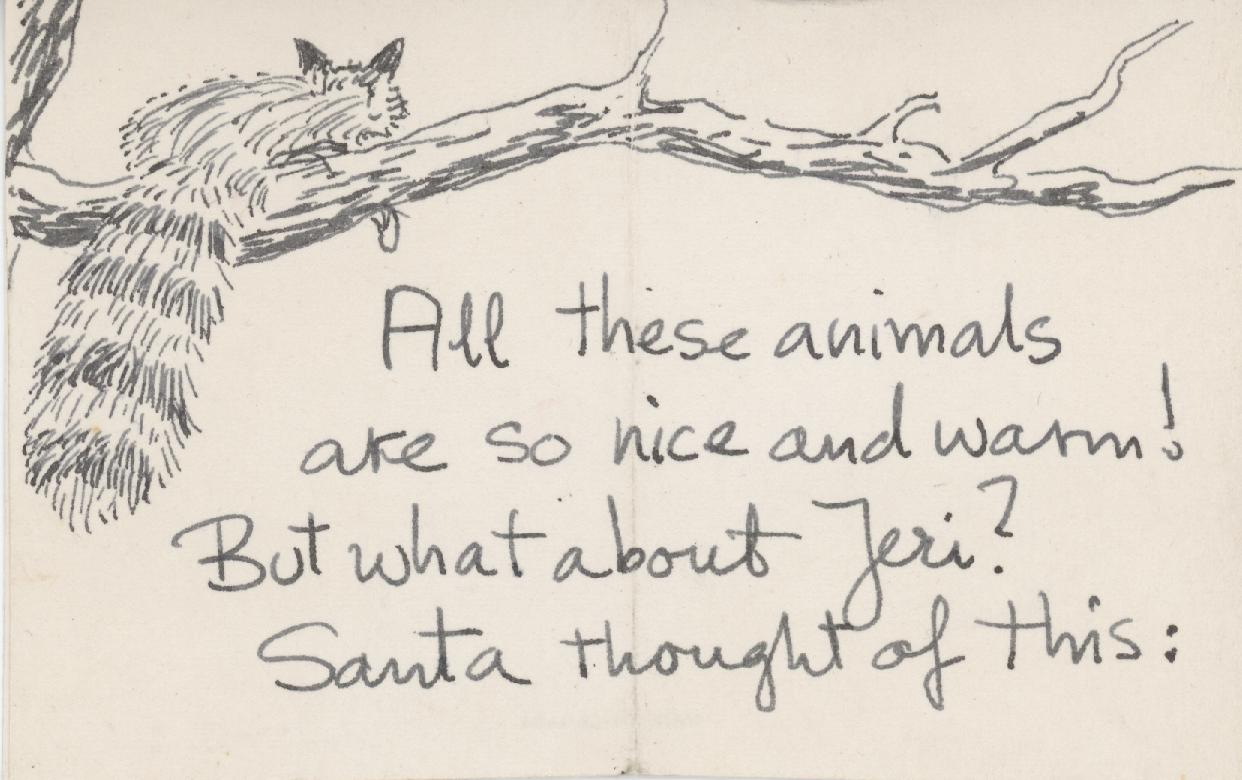 All these animals
are so nice and warm!
But what about Jeri?
Santa thought of this: